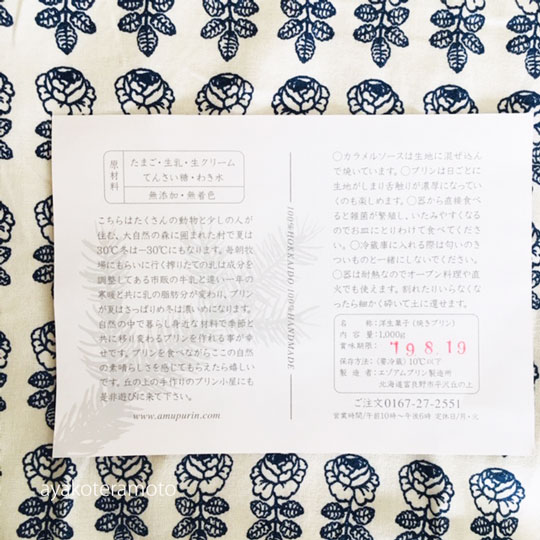 原材料
たまご・生乳・生クリーム
てんさい糖・わき水
無添加・無着色
こちらはたくさんの動物と少しの人が
住む、大自然の森に囲まれた村で夏は
30℃冬は−30℃にもなります。毎朝牧
場にもらいに行く搾りたての乳は成分を
調整してある市販の牛乳と違い一年の
寒暖と共に乳の脂肪分が変わり、プリン
が夏はさっぱりめ冬は濃いめになります。
自然の中で暮らし身近な材料で季節と
共に移り変わるプリンを作れる事が幸
せです。プリンを食べながらここの自然
の素晴らしさを感じてもらえたら嬉しい
です。丘の上の手作りのプリン小屋にも
是非遊びに来て下さい。
www.amupurin.com
100%HOKKAIDO 100%HANDMADE
○カラメルソースは生地に混ぜ込ん
で焼いています。○プリンは日ごとに
生地がしまり舌触りが濃厚になってい
くのも楽しめます。○器から直接食べ
ると雑菌が繁殖し、いたみやすくなる
のでお皿にとりわけて食べてくださ
い。○冷蔵庫に入れる際は匂いのき
ついものと一緒にしないでください。
○器は耐熱なのでオーブン料理や直
火でも使えます。割れたりいらなくな
ったら細かく砕いて土に還せます。
名 称：洋生菓子（焼きプリン）
内 容 量：1,000g
賞味期限： '19.8.19
保存方法：（要冷蔵）10℃以下
製 造 者：エゾアムプリン製造所
北海道富良野市字沢丘の上
ご注文0167-27-2551
営業時間／午前10時〜午後6時 定休日／月・火
ayakoteramoto